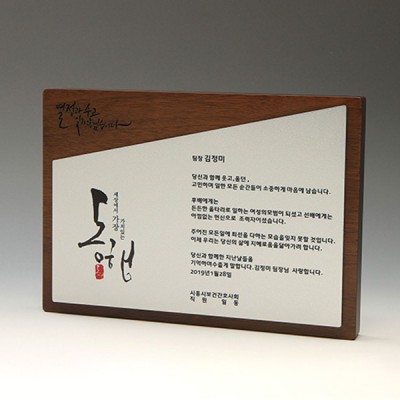 열정과 수고
세상에서 가장
가치있는
동행
팀장 김정미
당신과 함께 웃고,울던,
고민하며 일한 모든 순간들이 소중하게 마음에 남습니다.
후배에게는
든든한 울타리로 일하는 여성의모범이 되셨고 선배에게는
아낌없는 헌신으로 조력자이셨습니다.
주어진 모든일에 최선을 다하는 모습을잊지 못할 것입니다.
이제 우리는 당신의 삶에 지혜로움을닮아가려 합니다.
당신과 함께한 지난날들을
기억하며수줍게 말합니다.김정미 팀장님 사랑합니다.
2019년1월28일
시흥시보건간호사회
직 원 일 동